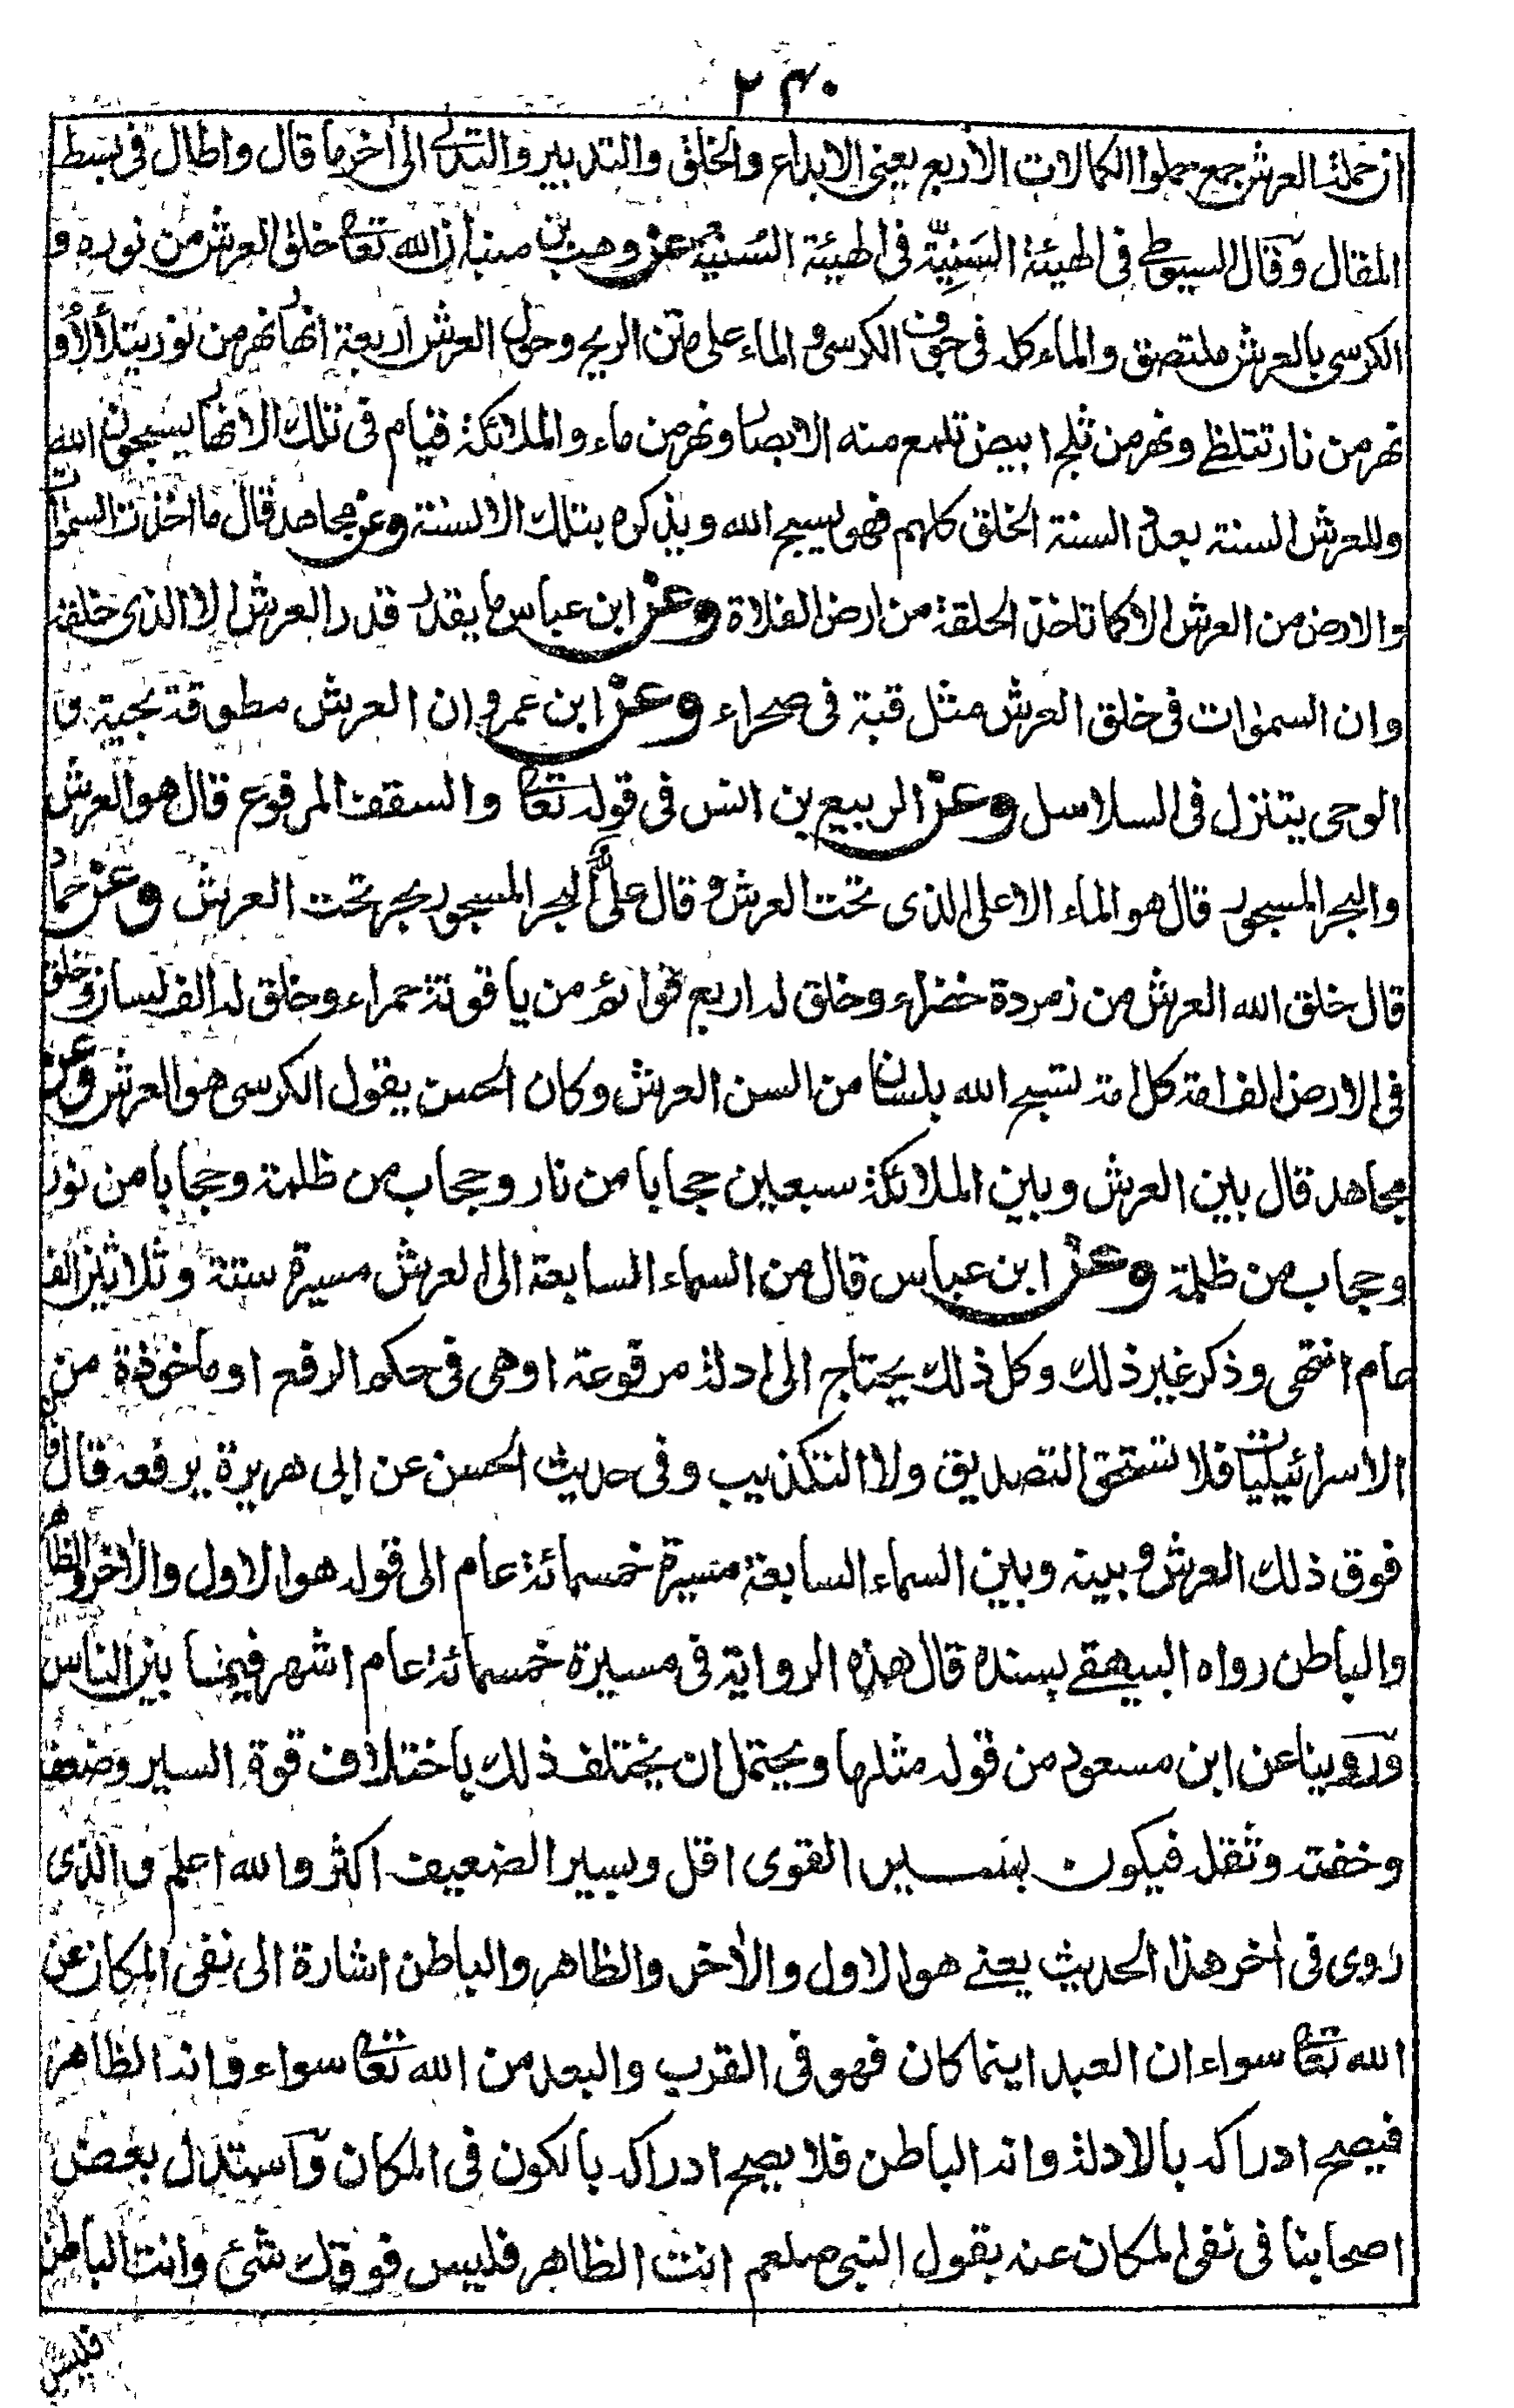 ٢٤٠
ان حملة العرش جمع حملوا الكمالات الأربع يعنى الابداع والخلق والتدبير والتدلى الى أخر ما قال واطال فى بسط
المقال وقال السيوطى فى الهيئة السَنِيّة فى الهيئة السُنيّة عن وهب بن منبه ان الله تعالى خلق العرش من نوره و
الكرسى بالعرش ملتصق والماء كله فى جوف الكرسى و الماء على متن الريح وحول العرش اربعة انهار نهر من نور يتلألأ و
نهر من نار تتلظى ونهر من ثلج ابيض تلمع منه الابصار ونهر من ماء والملائكة قيام فى تلك الانهار يسبحون الله
وللعرش السنة بعدد السنة الخلق كلهم فهو يسبح الله ويذكره بتلك الالسنة وعن مجاهد قال ما اخذت السموات
والارض من العرش الا كما تاخذ الحلقة من ارض الفلاة وعن ابن عباس ما يقدر قدر العرش الا الذى خلقه
وان السموات فى خلق العرش مثل قبة فى صحراء وعن ابن عمرو ان العرش مطوقة بحية و
الوحى يتنزل فى السلاسل وعن الربيع بن انس فى قوله تعالى والسقف المرفوع قال هو العرش
والبحر المسجور قال هو الماء الاعلى الذى تحت العرش و قال على البحر المسجور بحر تحت العرش وعن حماد
قال خلق الله العرش من زمردة خضراء وخلق له اربع قوائم من ياقوتة حمراء وخلق له الف لسان وخلق
فى الارض الف امة كل امة تسبح الله بلسان من السن العرش وكان الحسن يقول الكرسى هو العرش وعن
مجاهد قال بين العرش وبين الملائكة سبعين حجابا من نار وحجاب من ظلمة وحجابا من نور
وحجاب من ظلمة وعن ابن عباس قال من السماء السابعة الى العرش مسيرة ستة وثلاثين الف
عام انتهى وذكر غير ذلك وكل ذلك يحتاج الى ادلة مرفوعة او هى فى حكم الرفع او ماخوذة من
الاسرائيليات فلا تستحق التصديق ولا التكذيب وفى حديث الحسن عن ابى هريرة يرفعه قال
فوق ذلك العرش و بينه وبين السماء السابعة مسيرة خمسمائة عام الى قوله هو الاول والأخر والظاهر
والباطن رواه البيهقى بسنده قال هذه الرواية فى مسيرة خمسمائة عام اشهر فيما بين الناس
وروينا عن ابن مسعود من قوله مثلها ويحتمل ان يختلف ذلك باختلاف قوة السير وضعفه
وخفته وثقله فيكون بسير القوى اقل وبسير الضعيف اكثر والله اعلم والذى
روى فى أخر هذا الحديث يعنى هو الاول والأخر والظاهر والباطن اشارة الى نفى المكان عن
الله تعالى سواء ان العبد اينما كان فهو فى القرب والبعد من الله تعالى سواء وانه الظاهر
فيصح ادراكه بالادلة وانه الباطن فلا يصح ادراكه بالكون فى المكان واستدل بعض
اصحابنا فى نفى المكان عنه بقول النبى صلعم انت الظاهر فليس فوقك شئ وانت الباطن
فليس